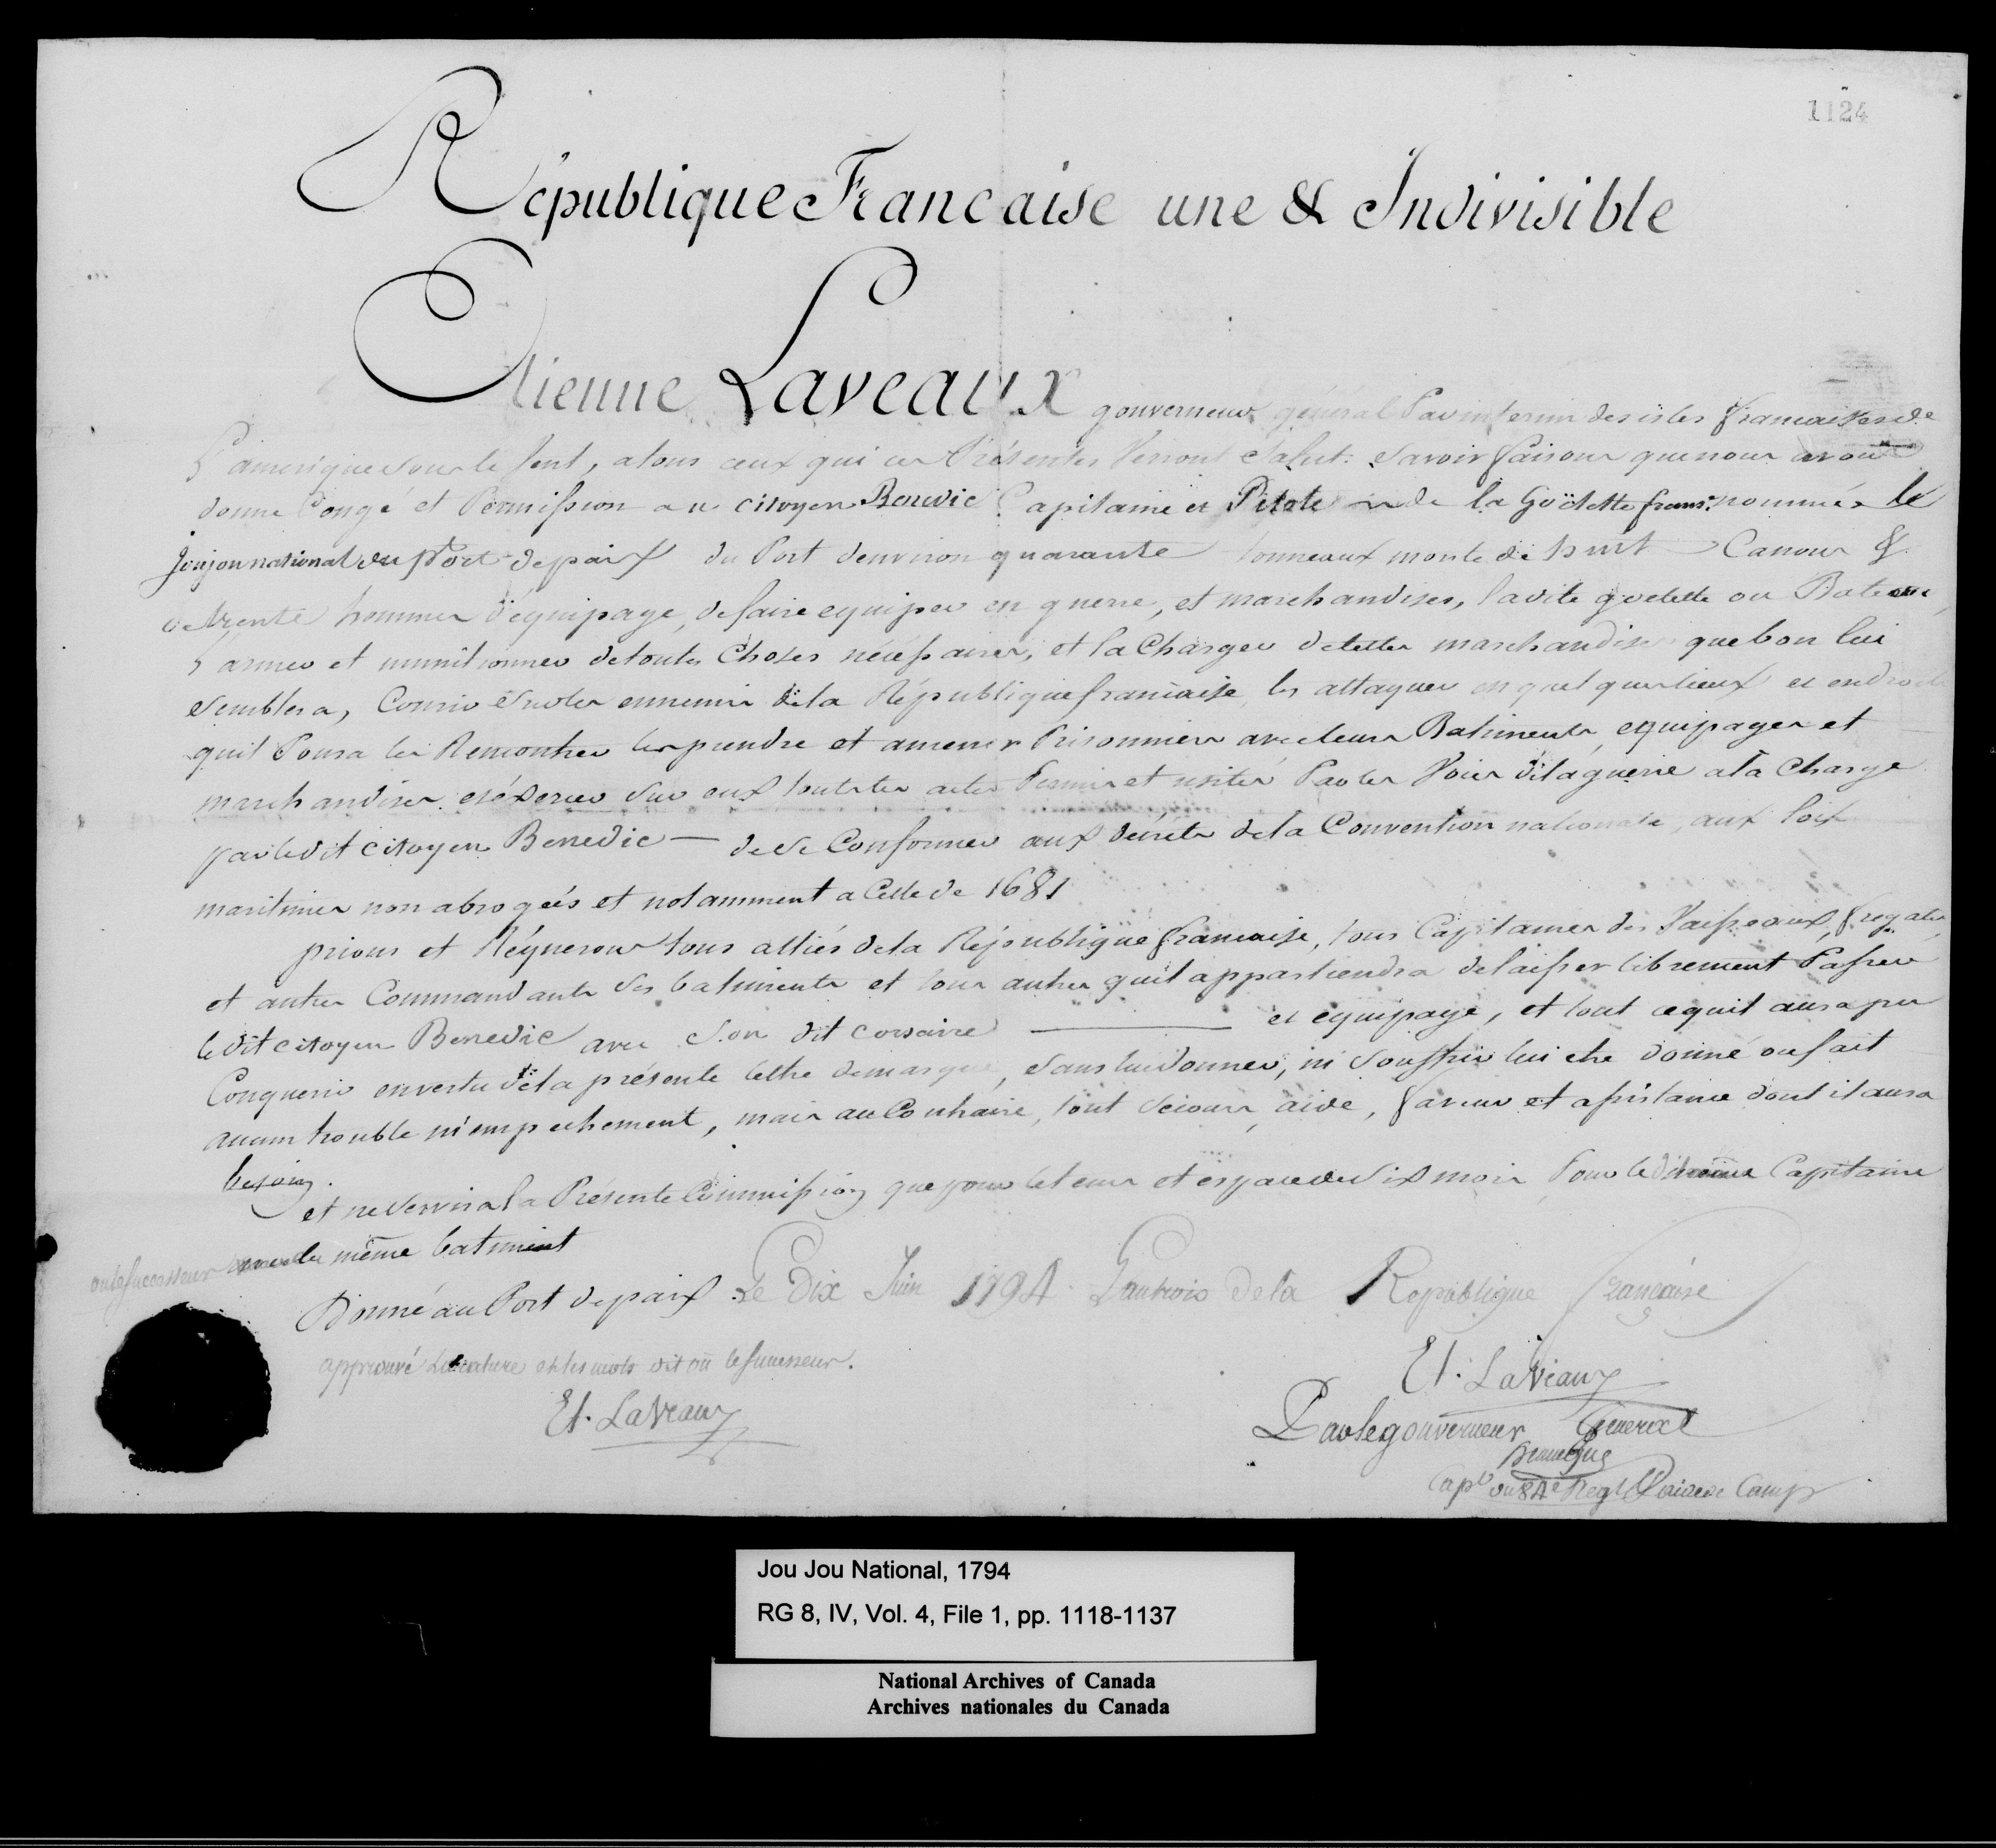 1124
République Francaise une & Indivisible
Etienne Laveaux gouverneur général Par interim des isles francaises de
L'amerique sous le Vent, a tous ceux qui ces Présentes Verront Salut. Savoir faisons que nous avons
donné Congé et Permission au citoyen Benedic Capitaine et Pilote de la Goëlette franc.se nommée le
Joujou national du Port depaix du Port denviron quarante tonneaux monté de huit Canons &
de trente hommes d'équipage, de faire equiper en guerre, et marchandises, la dite goelette ou Bateau,
L'armer et munitionner de toutes Choses nécéssaires, et la Charger de telles marchandises que bon lui
Semblera, Courir Sur les ennemis de la République francaise, les attaquer en quelques lieux et endroits
quil Poura les Rencontrer les prendre et amener Prisonniers avec leurs Batiments, equipages et
marchandises, et éxercer Sur eux toutes les actes Permis et usités Par les Voies de la guerre a la Charge
par le dit citoyen Benedic — de Se Conformer aux décrets de la Convention nationale, aux loix
maritimes non abrogées et notamment a Celle de 1681
prions et Réquerons tous alliés de la République francaise, tous Capitaines des Vaisseaux, fregates,
et autres Commandants des batiments et tous autres quil appartiendra de laisser librement Passer
le dit citoyen Benedic avec Son dit corsaire — et equipage, et tout ce quil aura pu
Conquerir en vertu de la présente lettre de marque, Sans lui donner, ni Souffrir lui etre donné ou fait
aucun trouble ni empechement, mais au Contraire, tout Secours, aide, faveur et assistance dont il aura
besoin.
et ne Servira la Présente Commission que pour le tems et espace de Six mois Pour le dit Capitaine
ou le successeur le même batiment
Donné au Port depaix Le Dix Juin 1794. L'an trois de la Republique française
approuvé La rature et les mots dit ou le successeur.
Et. Laveaux
Et. Laveaux
Par le gouverneur General
Capt du 84e Regt Aide de Camp
Jou Jou National, 1794
RG 8, IV, Vol. 4, File 1, pp. 1118-1137
National Archives of Canada
Archives nationales du Canada